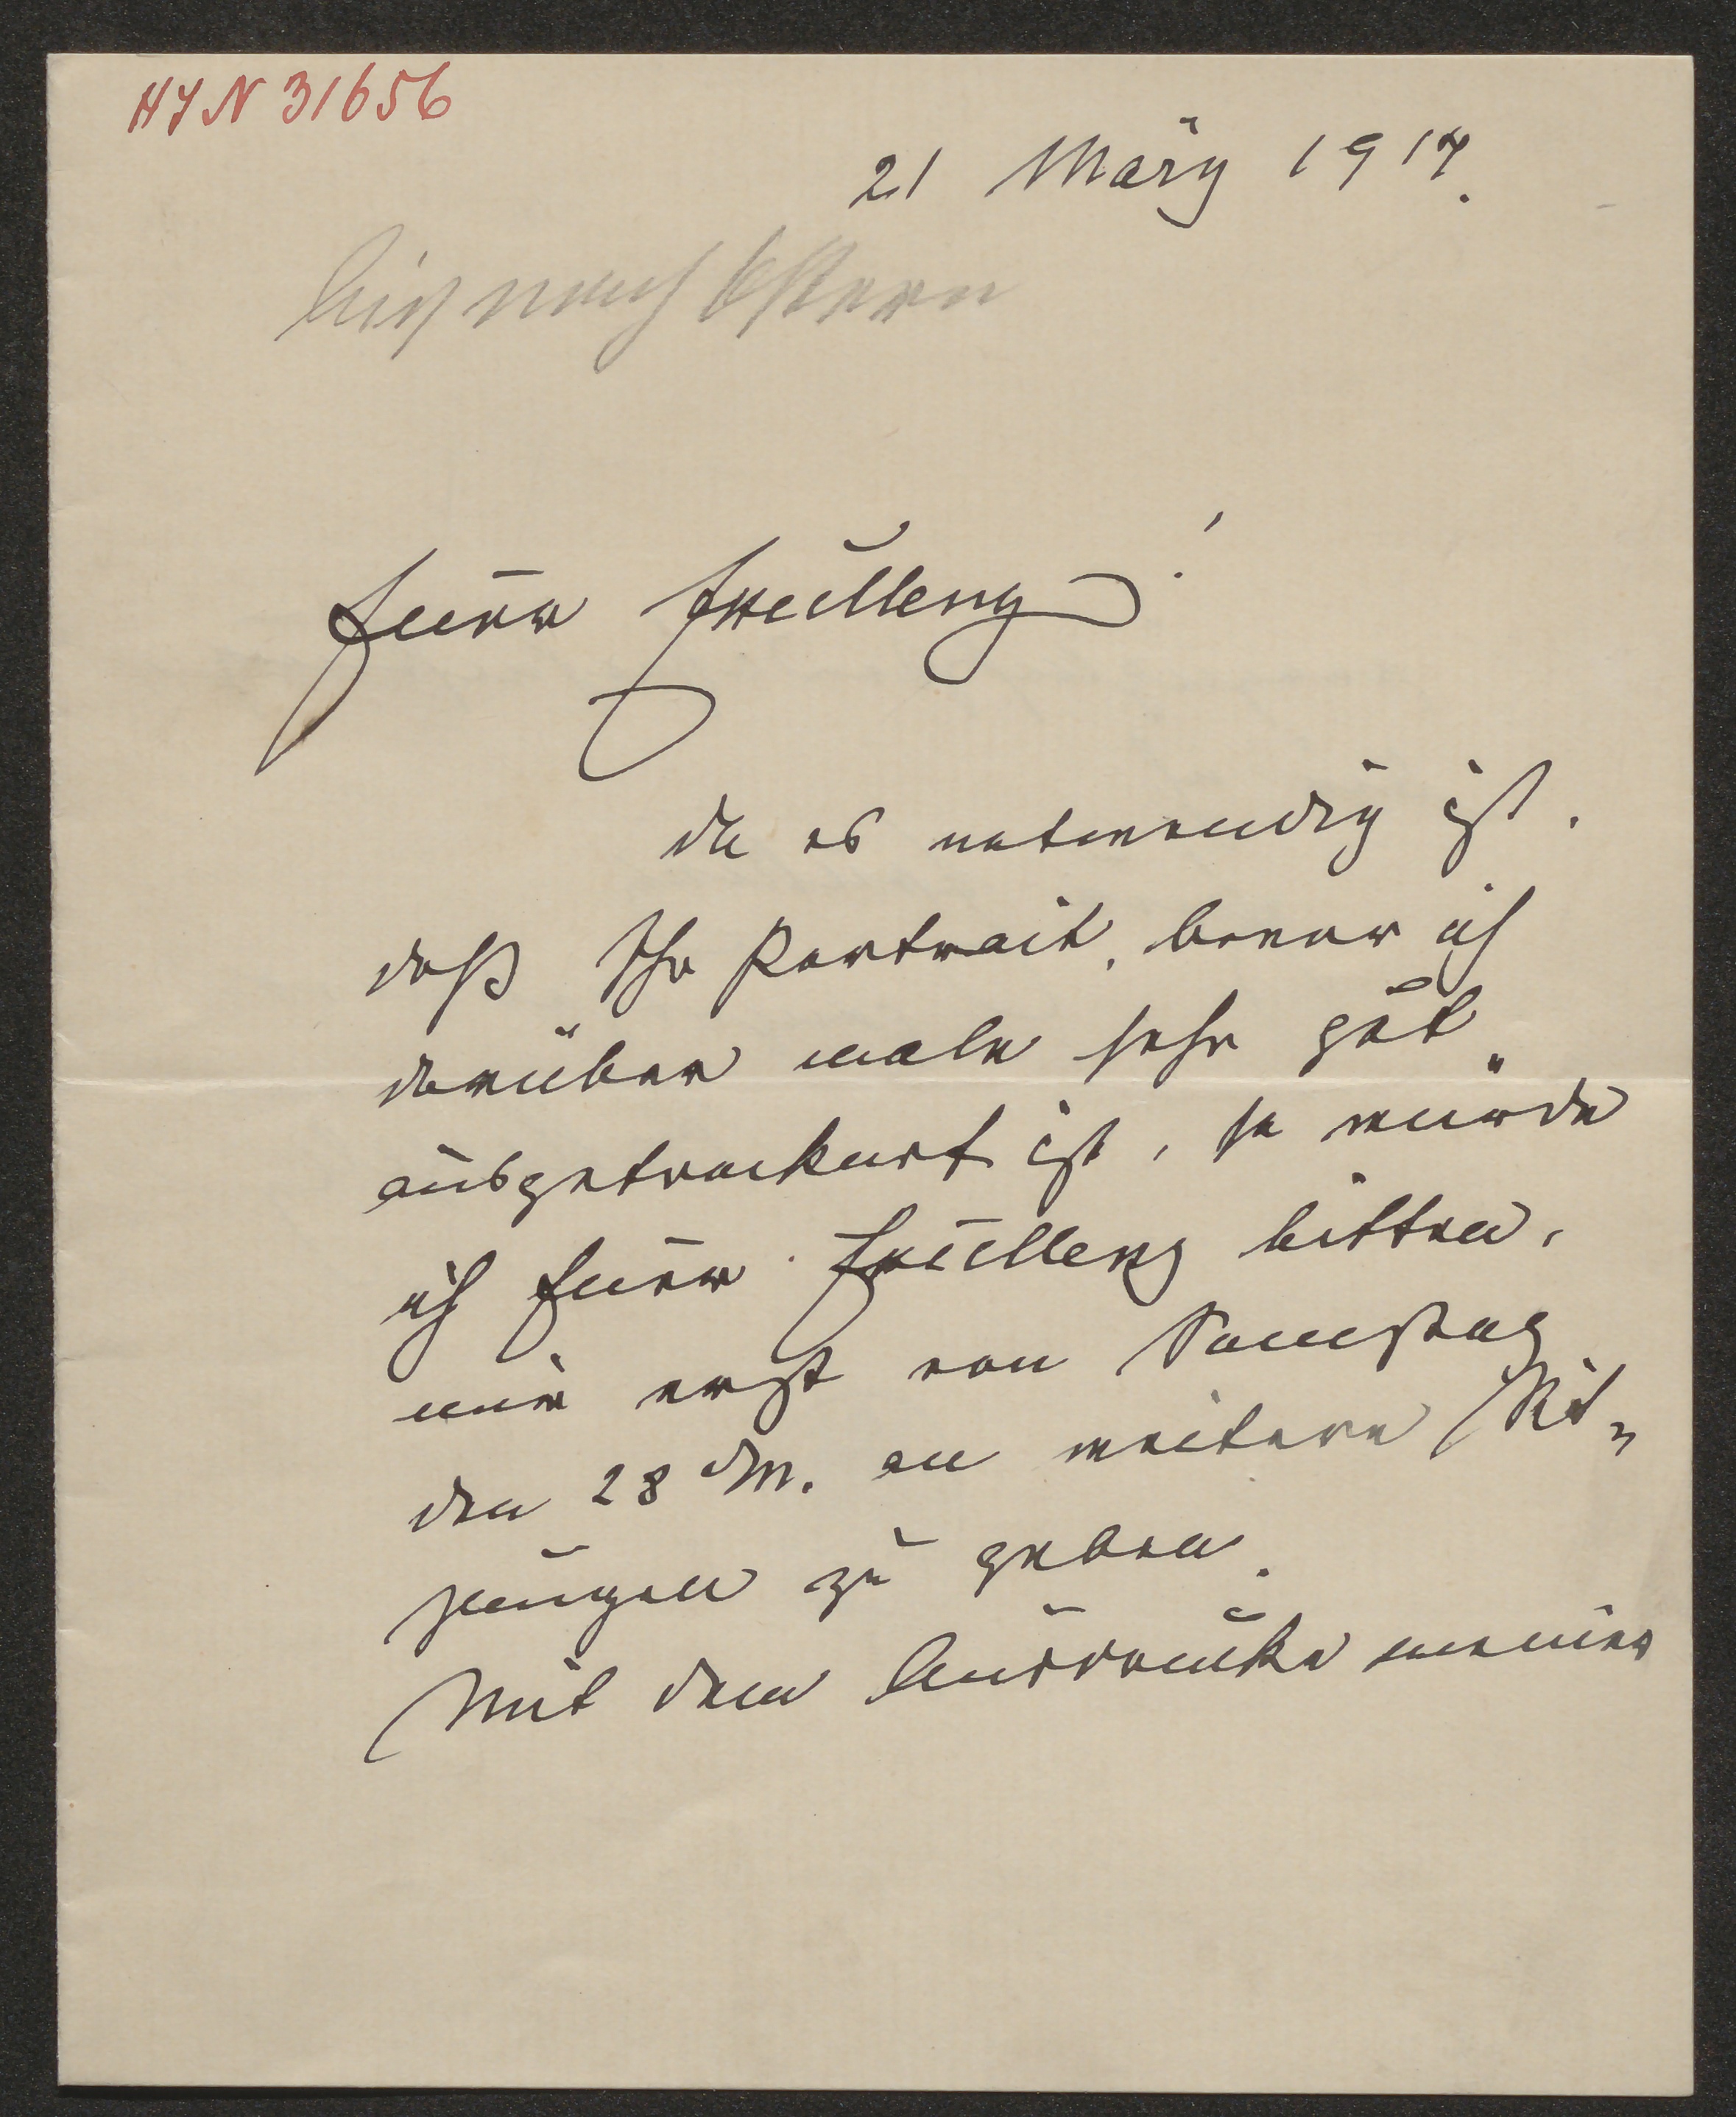 HJN 31656
21 März 1914.
bis nach Ostern
Euer Excellenz!
da es notwendig ist,
daß Ihr Portrait, bevor ich
darüber male sehr gut
ausgetrocknet ist, so würde
ich Euer Excellenz bitten,
mir erst von Samstag
den 28 d.M. an weitere Sit-
zungen zu geben.
Mit dem Ausdrucke meiner